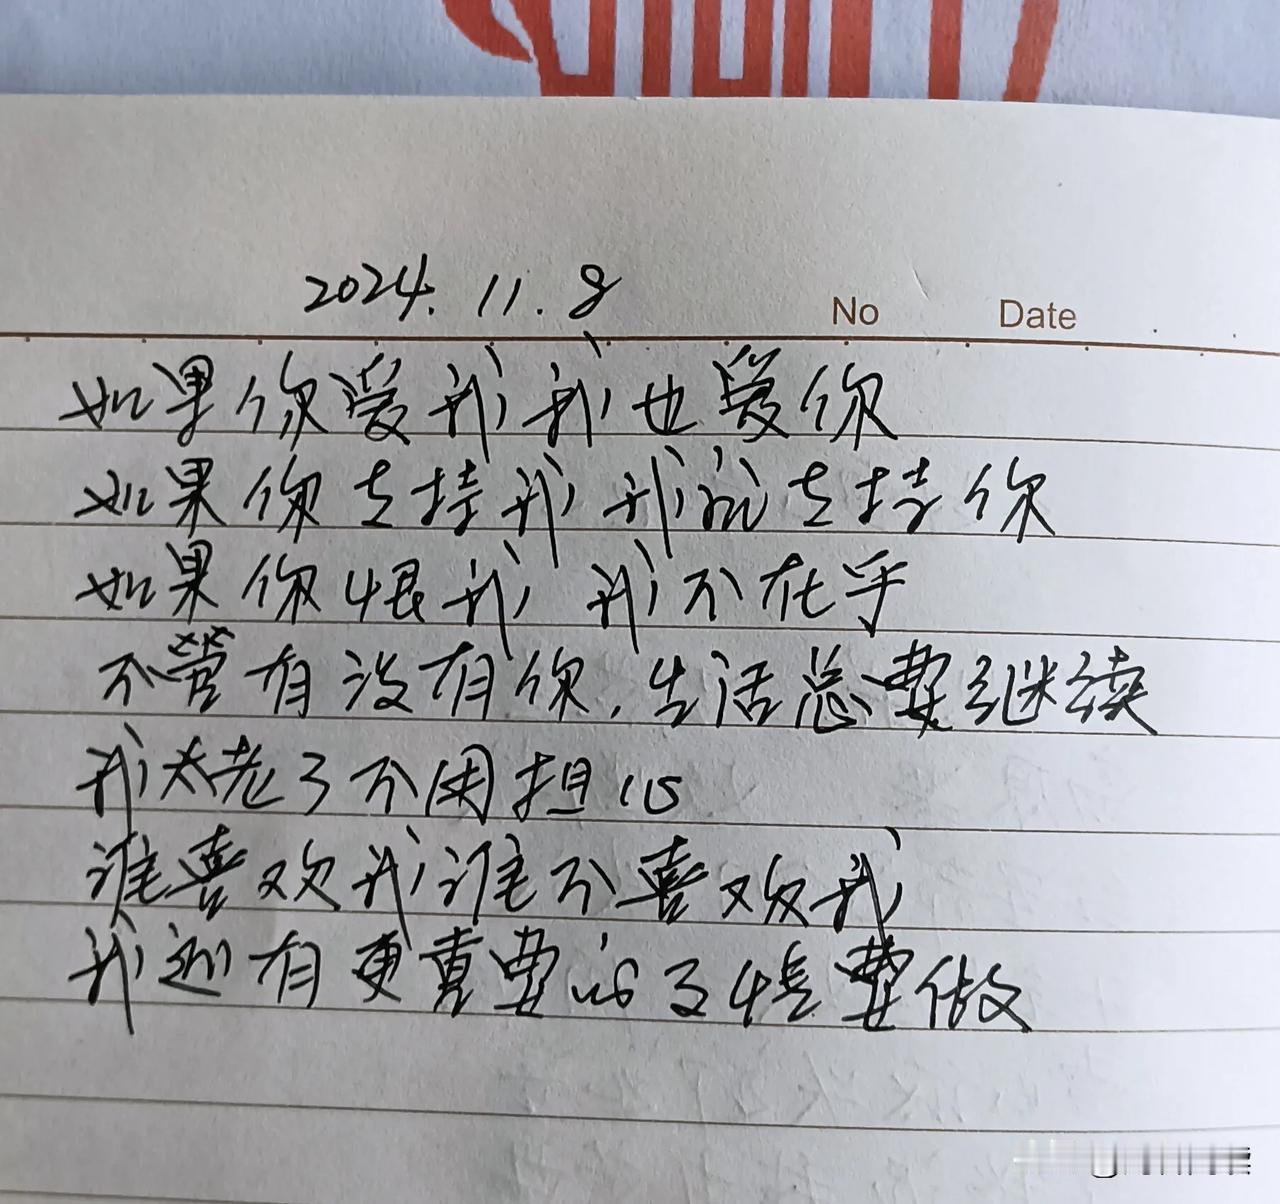 2024.11.8
No Date
如果你爱我我也爱你
如果你支持我我就支持你
如果你恨我 我不在乎
不管有没有你,生活总要继续
我太老了不用担心
谁喜欢我谁不喜欢我
我还有更重要的事情要做